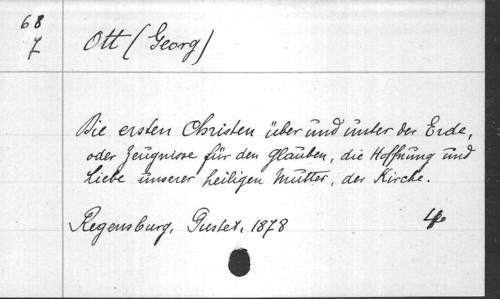 68
7
Ott (Georg)
Die ersten Christen über und unter der Erde,
oder Zeugnisse für den Glauben, die Hoffnung und
Liebe unserer heiligen Mutter, der Kirche.
Regensburg, Pustet, 1878
4o